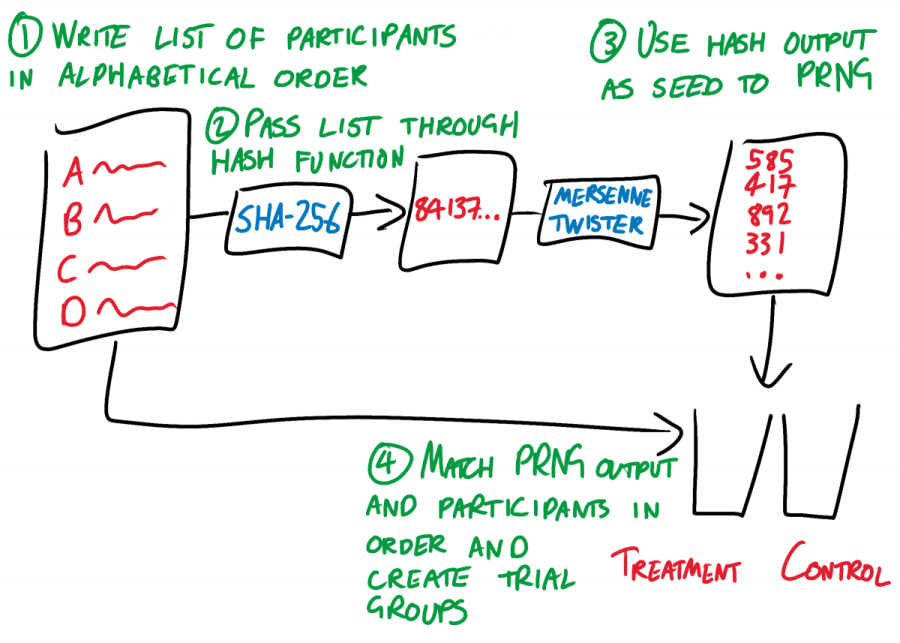 ① WRITE LIST OF PARTICIPANTS
IN ALPHABETICAL ORDER
② PASS LIST THROUGH
HASH FUNCTION
③ USE HASH OUTPUT
AS SEED TO PRNG
A
B
C
D
SHA-256
84137...
MERSENNE
TWISTER
585
417
892
331
...
④ MATCH PRNG OUTPUT
AND PARTICIPANTS IN
ORDER AND
CREATE TRIAL
GROUPS
TREATMENT
CONTROL